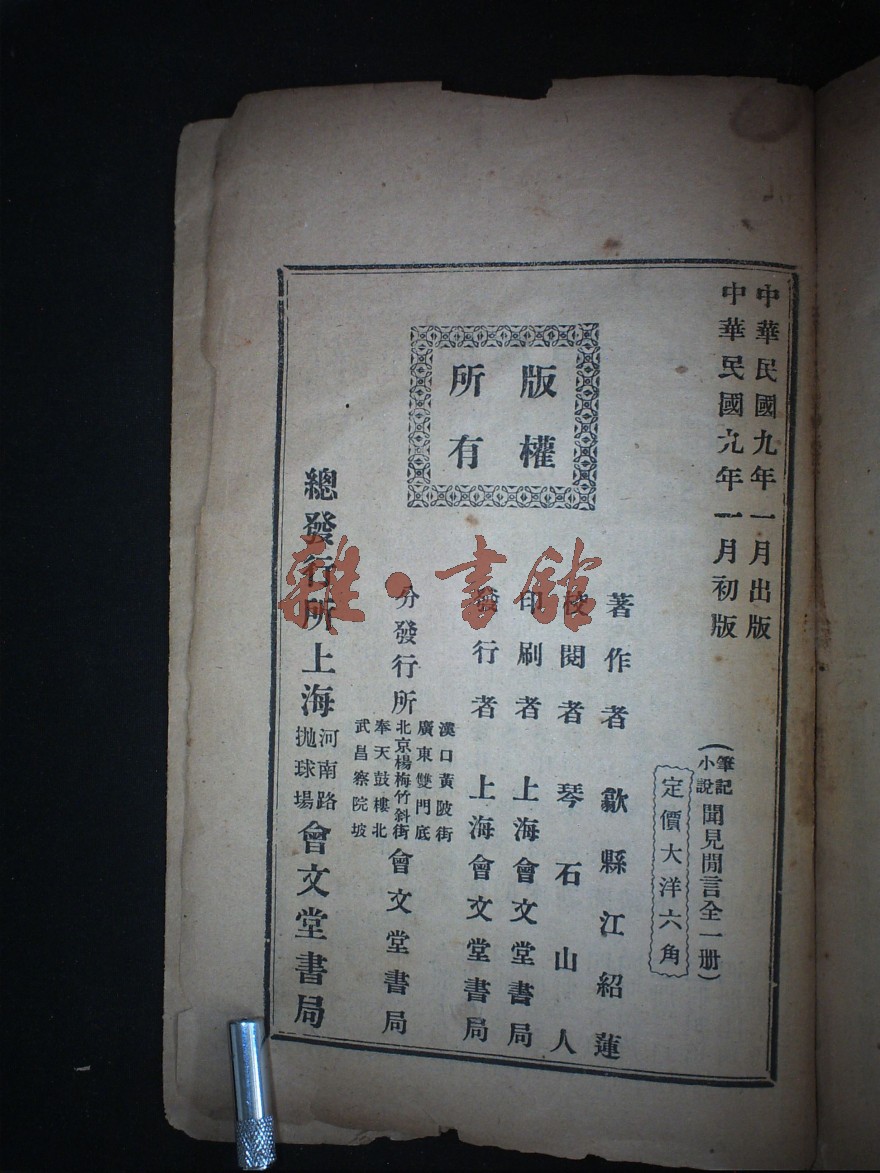 中華民國九年一月出版
中華民國九年一月初版
(筆記小說聞見閒言全一册)
定價大洋六角
版權所有
著作者 歙縣江紹蓮
校閱者 琴石山人
印刷者 上海會文堂書局
發行者 上海會文堂書局
分發行所
漢口黃陂街
廣東雙門底
北京楊梅竹斜街
奉天鼓樓北
武昌察院坡
會文堂書局
總發行所上海河南路拋球場會文堂書局
雜·書館